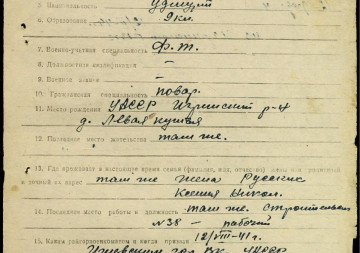 5. Национальность удмурт
6. Образование 9 кл.
7. Военно-учетная специальность ф.т.
8. Должностная квалификация —
9. Военное звание —
10. Гражданская специальность повар.
11. Место рождения УАССР Игринский р-н
д. Левая кушья
12. Последнее место жительства там же.
13. Где проживает в настоящее время семья (фамилия, имя, отчество) жены или родителей
и точный их адрес там же жена Русских
Ксения Никол.
14. Последнее место работы и должность там же. Строительст
№38 — рабочий
15. Каким райгорвоенкоматом и когда призван 12/VIII-41 г.
гор. ВК. УАССР